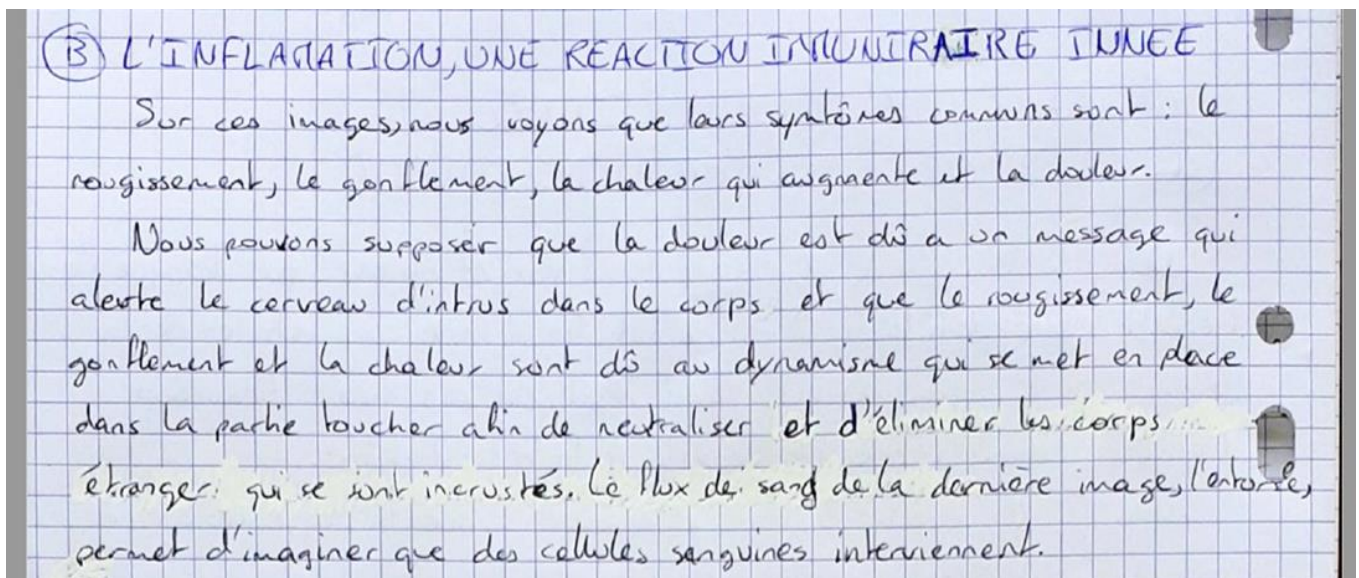 B L'INFLAMATION, UNE REACTION IMMUNIRAIRE INNEE
Sur ces images, nous voyons que leurs symtômes communs sont : le
rougissement, le gonflement, la chaleur qui augmente et la douleur.
Nous pouvons supposer que la douleur est dû a un message qui
alerte le cerveau d'intrus dans le corps et que le rougissement, le
gonflement et la chaleur sont dûs au dynamisme qui se met en place
dans la partie toucher afin de neutraliser et d'éliminer les corps
étranger qui se sont incrustés. Le flux de sang de la dernière image, l'entorse,
permet d'imaginer que des cellules sanguines interviennent.